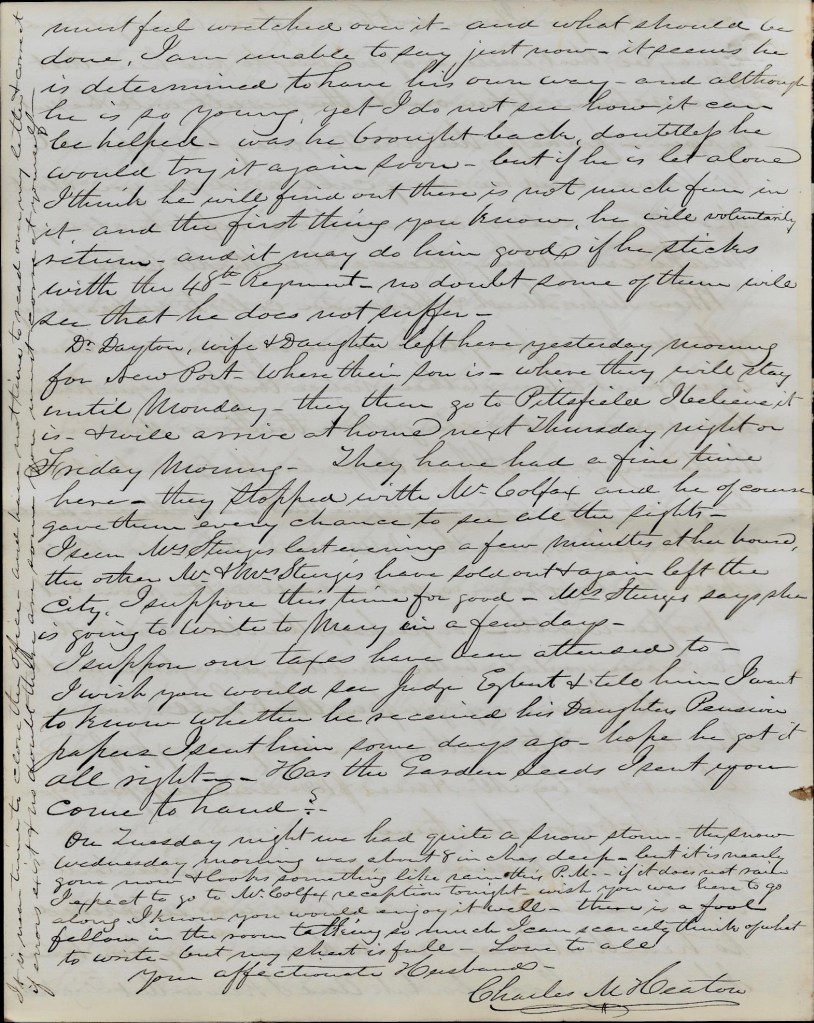 must feel wretched over it - and what should be
done, I am unable to say just now - it seems he
is determined to have his own way - and although
he is so young, yet I do not see how it can
be helped - was he brought back, doubtless he
would try it again soon - but if he is let alone
I think he will find out there is not much fun in
it and the first thing you know, he will voluntarily
return - and it may do him good, if he sticks
with the 48th Regment - no doubt some of them will
see that he does not suffer -
Dr Dayton, wife & Daughter left here yesterday morning
for New Port - where their son is - where they will stay
until Monday - they then go to Pittsfield I believe it
is - & will arrive at home next Thursday night or
Friday Morning - They have had a fine time
here - they stopped with Mr Colfax and he of course
gave them every chance to see all the sights -
I seen Mrs Sturgis last evening a few minutes at her house,
the other Mr & Mrs Sturgis have sold out & again left the
City, I suppose this time for good - Mrs Sturgis says she
is going to write to Mary in a few days -
I suppose our taxes have been attended to -
I wish you would see Judge Egbert & tell him I want
to know whether he received his Daughters Pension
papers I sent him some days ago - hope he got it
all right - - Has the Garden Seeds I sent you
come to hand ? -
On Tuesday night we had quite a snow storm - the snow
Wednesday morning was about 8 inches deep - but it is nearly
gone now & looks something like rain this P.M. - if it does not rain
I expect to go to Mr Colfax reception tonight - wish you was here to go
along I know you would enjoy it well - there is a fool
fellow in the room talking so much I can scarcely think of what
to write - but my sheet is full - Love to all
Your affectionate Husband -
Charles M Heaton
It is near time to close the office - and have not time to read over my letter & correct
if errors exist & no doubt there are some you must correct yourself